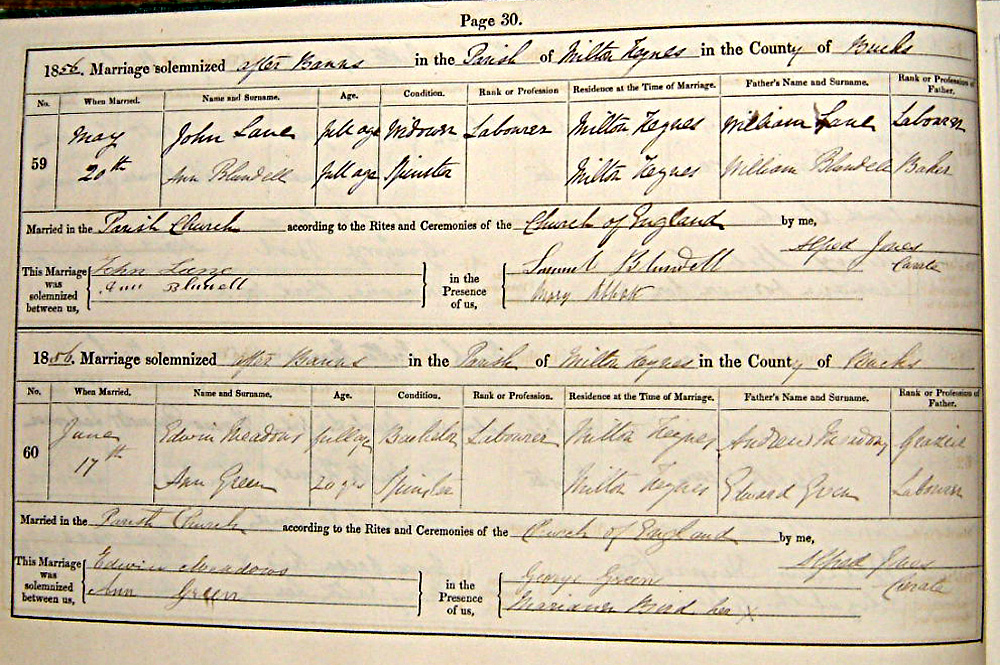 Page 30.
1856. Marriage solemnized after Banns in the Parish of Milton Keynes in the County of Bucks
No. When Married. Name and Surname. Age. Condition. Rank or Profession Residence at the Time of Marriage. Father's Name and Surname. Rank or Profession of Father.
59 May 20th John Lane full age Widower Labourer Milton Keynes William Lane Labourer
Ann Blundell full age Spinster Milton Keynes William Blundell Baker
Married in the Parish Church according to the Rites and Ceremonies of the Church of England by me,
Alfred Jones
Curate
This Marriage was solemnized between us, John Lane
Ann Blunell
in the Presence of us, Samuel Blundell
Mary Abbott
1856. Marriage solemnized after Banns in the Parish of Milton Keynes in the County of Bucks
No. When Married. Name and Surname. Age. Condition. Rank or Profession Residence at the Time of Marriage. Father's Name and Surname. Rank or Profession of Father.
60 June 17th Edwin Meadows full age Bachelor Labourer Milton Keynes Andrew Meadows Grazier
Ann Green 20 yrs Spinster Milton Keynes Edward Green Labourer
Married in the Parish Church according to the Rites and Ceremonies of the Church of England by me,
Alfred Jones
Curate
This Marriage was solemnized between us, Edwin Meadows
Ann Green
in the Presence of us, George Green
Bird her X